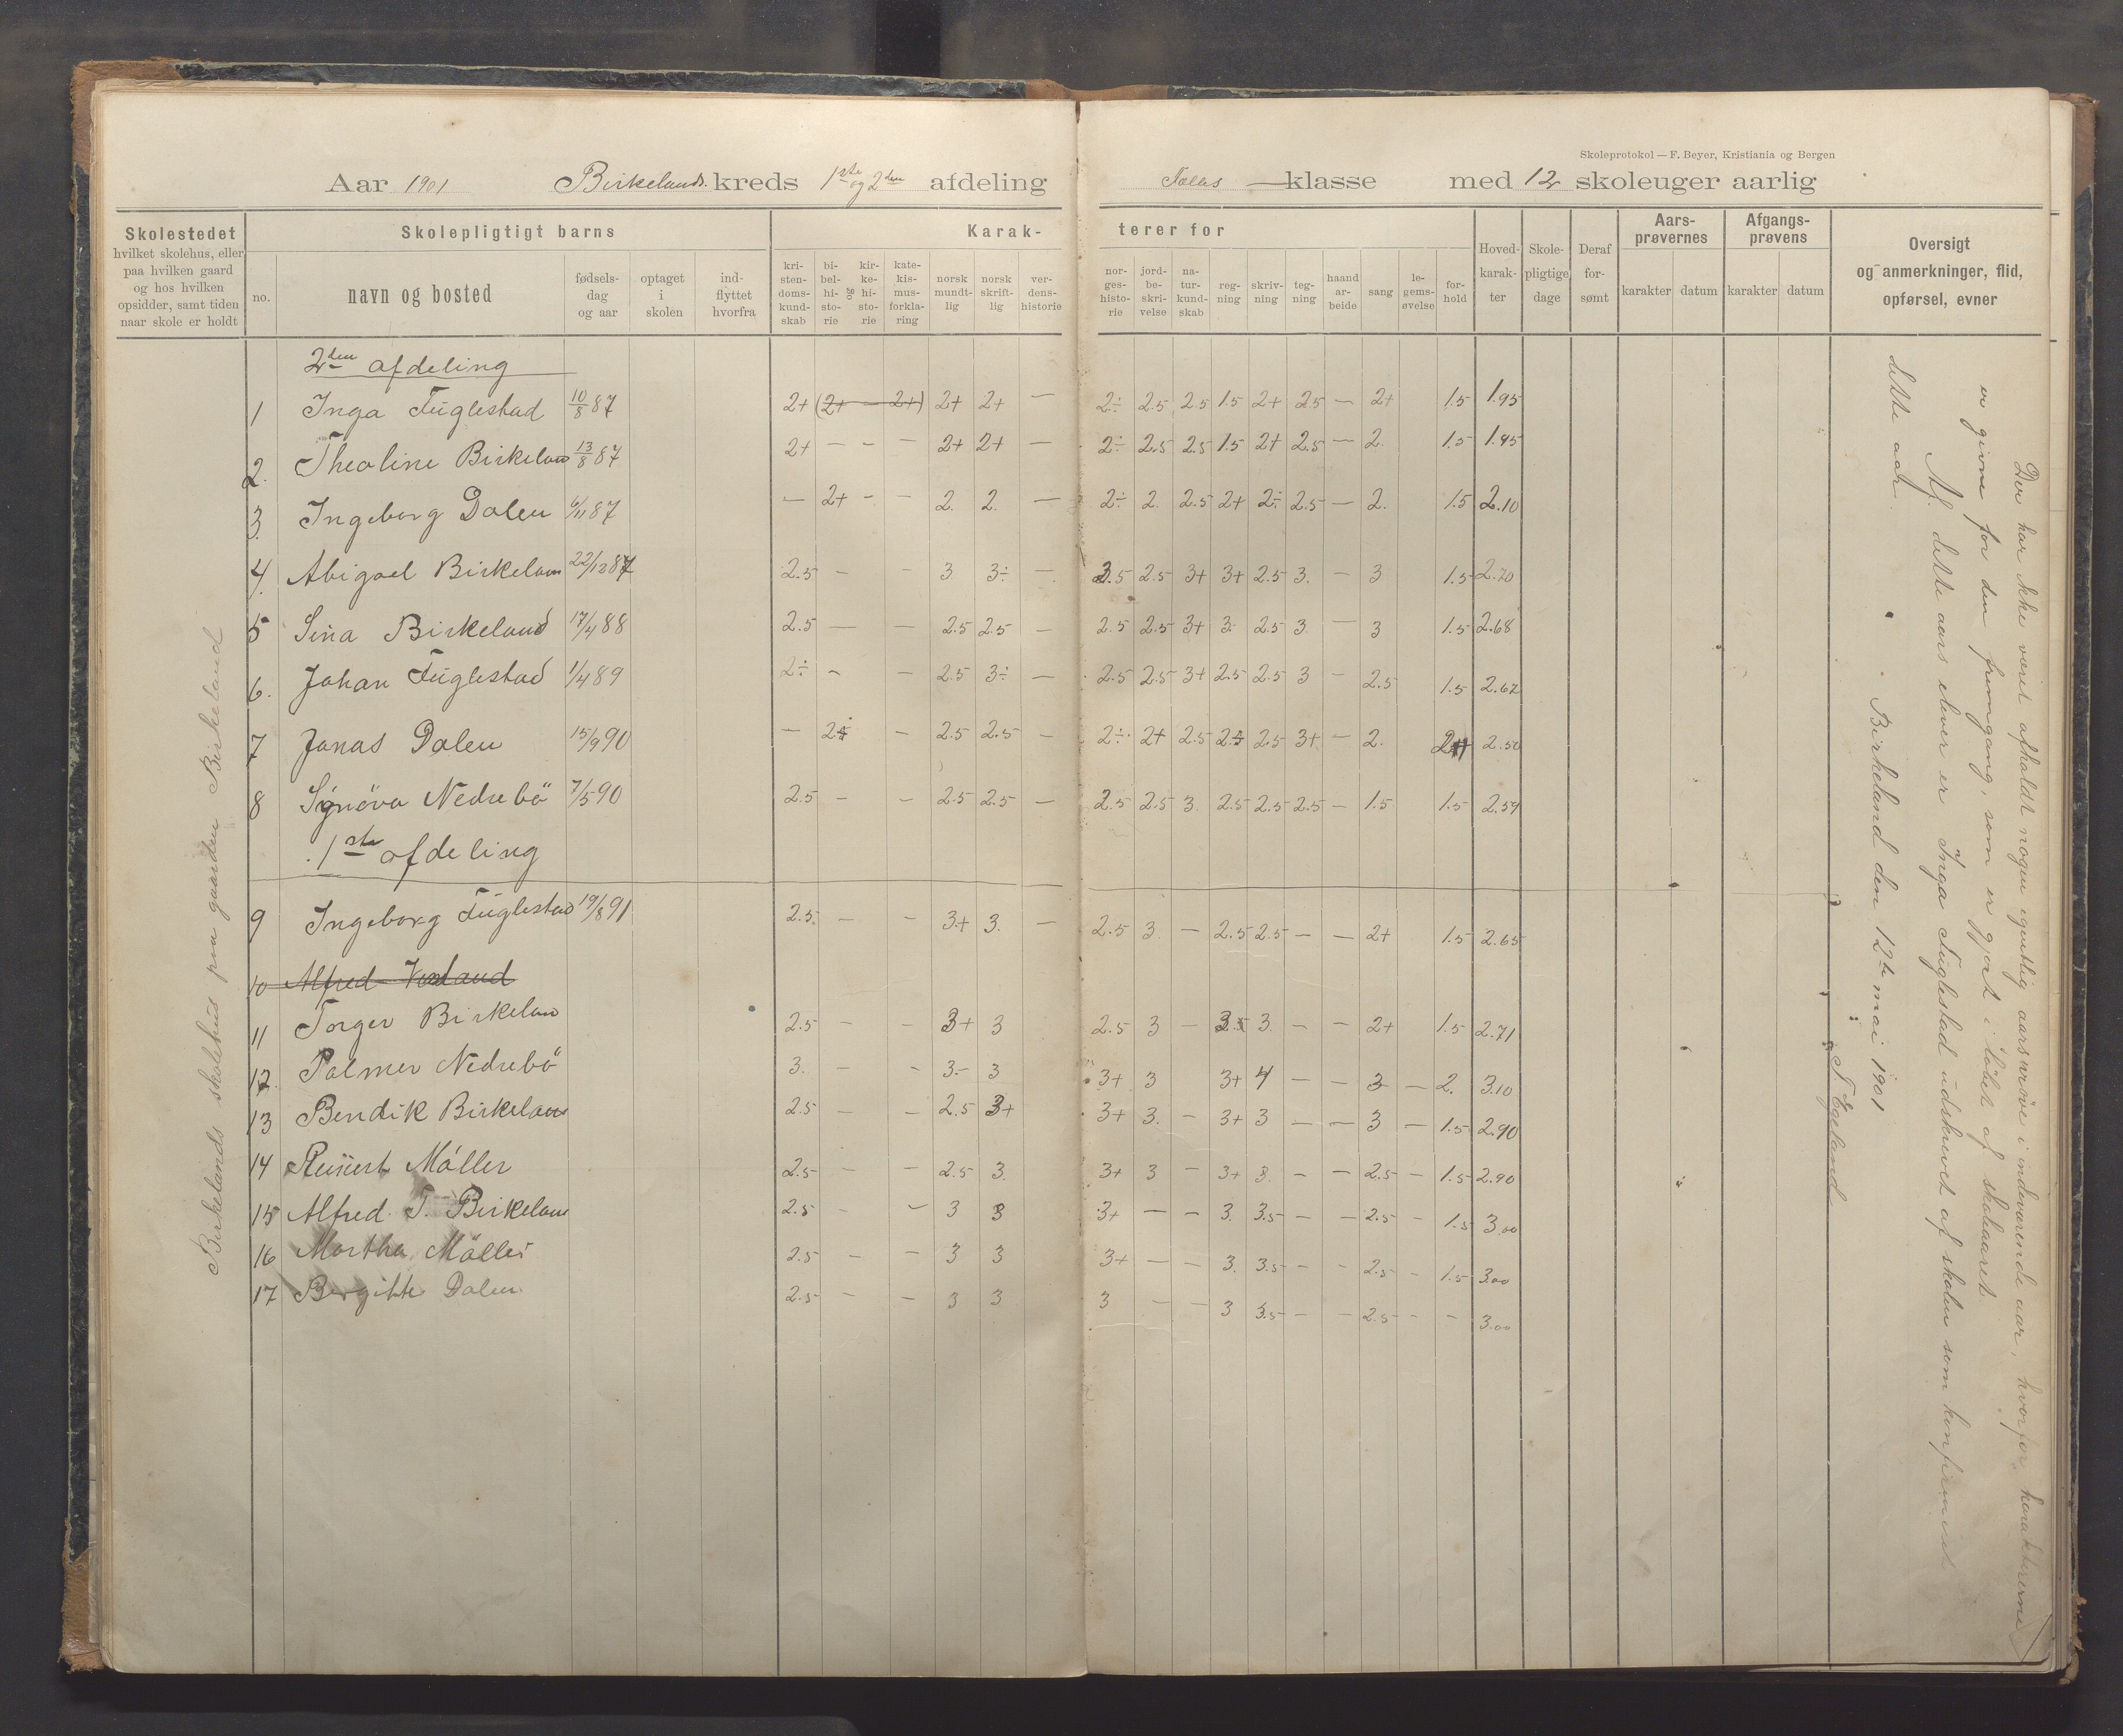 Skoleprotokol — F. Beyer, Kristiania og Bergen
Aar 1901 Birkelands kreds 1ste og 2den afdeling Fælles klasse med 12 skoleuger aarlig
Skolestedet
hvilket skolehus, eller
paa hvilken gaard
og hos hvilken
opsidder, samt tiden
naar skole er holdt
Skolepligtigt barns
no.
navn og bosted
fødsels-
dag
og aar
optaget
i
skolen
ind-
flyttet
hvorfra
Karak-
terer for
kri-
sten-
doms-
kund-
skab
bi-
bel-
hi-
sto-
rie
og
kir-
ke-
hi-
sto-
rie
kate-
kis-
mus-
forkla-
ring
norsk
mundt-
lig
norsk
skrift-
lig
ver-
dens-
historie
nor-
ges-
histo-
rie
jord-
be-
skri-
velse
na-
tur-
kund-
skab
reg-
ning
skriv-
ning
teg-
ning
haand
ar-
beide
sang
le-
gems-
øvelse
for-
hold
Hoved-
karak-
ter
Skole-
pligtige
dage
Deraf
for-
sømt
Aars-
prøvernes
karakter datum
Afgangs-
prøvens
karakter datum
Oversigt
og anmerkninger, flid,
opførsel, evner
Birkelands skolehus paa gaarden Birkeland
2den afdeling
1 Inga Fuglestad 10/8 87 2+ (2+ — 2+) 2+ 2+ — 2÷ 2.5 2.5 1.5 2+ 2.5 — 2+ 1.5 1.95
2. Theoline Birkeland 13/8 87 2+ — — — 2+ 2+ — 2÷ 2.5 2.5 1.5 2+ 2.5 — 2. 1.5 1.95
3. Ingeborg Dalen 6/11 87 — 2+ — — 2. 2. — 2÷ 2. 2.5 2+ 2÷ 2.5 — 2. 1.5 2.10
4. Abigael Birkelan 22/12 87 2.5 — — 3 3÷ — 2.5 2.5 3+ 3+ 2.5 3. — 3 1.5 2.70
5 Sina Birkeland 17/4 88 2.5 — — 2.5 2.5 — 2.5 2.5 3+ 3. 2.5 3. — 3 1.5 2.68
6. Johan Fuglestad 1/4 89 2÷ — — 2.5 3÷ — 2.5 2.5 3+ 2.5 2.5 3 — 2.5 1.5 2.67
7 Jonas Dalen 15/9 90 — 2÷ — 2.5 2.5 — 2÷ 2+ 2.5 2.5 2.5 3+ — 2. 2+ 2.50
8 Synöva Nedrebö 7/5 90 2.5 — — 2.5 2.5 — 2.5 2.5 3. 2.5 2.5 2.5 — 1.5 1.5 2.54
1ste afdeling
9 Ingeborg Fuglestad 19/8 91 2.5. — — 3+ 3. — 2.5 3. — 2.5 2.5 — — 2+ 1.5 2.65
10 Alfred
11 Torger Birkelan 2.5 — — 3+ 3 2.5 3 — 3.5 3. — — 2+ 1.5 2.71
12. Palmer Nedrebö 3. — — 3- 3 3+ 3 3+ 4 — — 3 — 2. 3.10
13 Bendik Birkelan 2.5 — — 2.5 3+ 3+ 3. — 3+ 3 — — 3 — 1.5 2.90
14 Reinert Möller 2.5 — — 2.5 3. 3+ 3 — 3+ 3. — — 2.5 — 1.5 2.90
15 Alfred T. Birkelan 2.5 — — 3 3 3+ — — 3. 3.5 — — 2.5 — 1.5 3.00
16 Martha Möller 2.5 — — 3 3 3+ — — 3. 3.5 — — 2.5 — 1.5 3.00
17 Bergitte Dalen 2.5 — — 3 3 3 — — 3 3.5 — — 2.5 — — 3.00
Der har ikke været afholdt nogen egentlig aarsprøve i indeværende aar, hvorfor karaktererne
er givne for den fremgang, som er gjort i löbet af skoleaaret.
Af dette aars elever er Inga Fuglestad udskrevet af skolen som konfirmeret
dette aar.
Birkeland den 12te mai 1901
T. Egeland